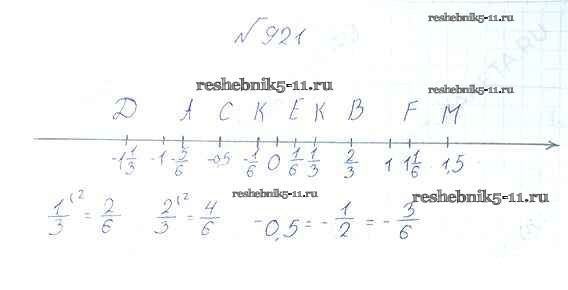 №921
reshebnik5-11.ru
reshebnik5-11.ru
reshebnik5-11.ru
D A C K E K B F M
-1 1/3 -1 -5/6 -0,5 -1/6 0 1/6 1/3 2/3 1 1 1/6 1,5
reshebnik5-11.ru
reshebnik5-11.ru
1/3 (2 = 2/6 2/3 (2 = 4/6 -0,5 = -1/2 = -3/6